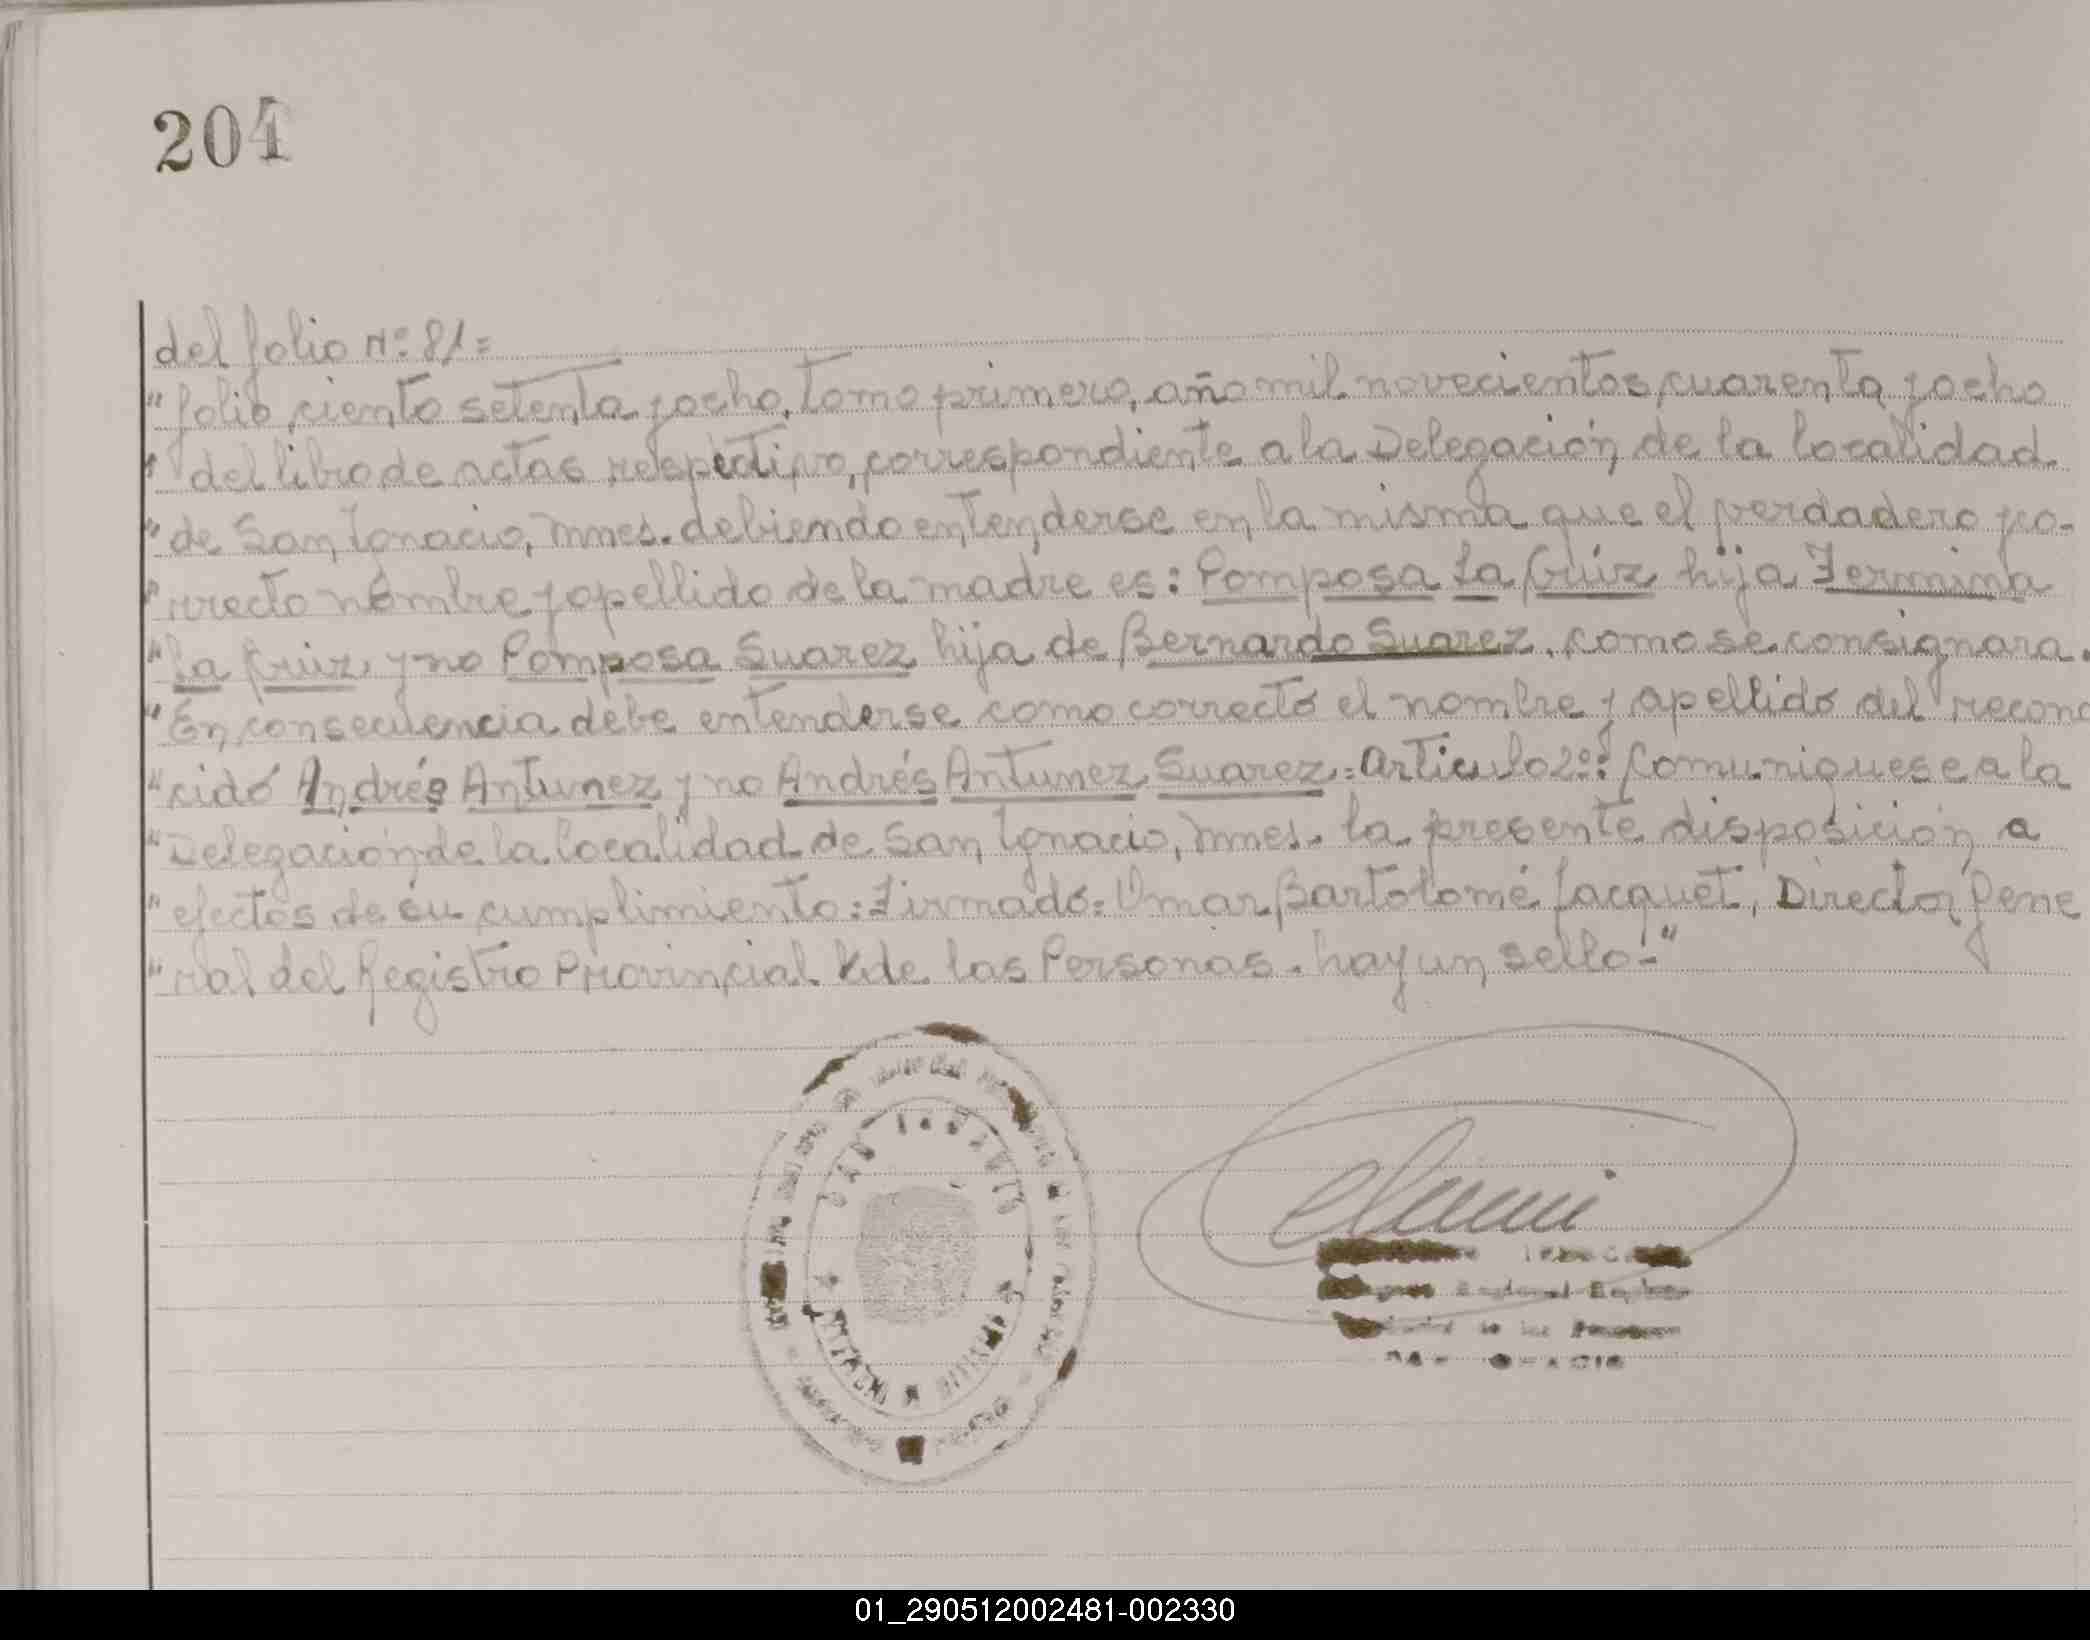 204
del folio Nº 81=
"folio ciento setenta y ocho, tomo primero, año mil novecientos cuarenta y ocho
" del libro de actas respectivo, correspondiente a la Delegación de la localidad
"de San Ignacio, Mnes. debiendo entenderse en la misma que el verdadero y co-
"rrecto nombre y apellido de la madre es: Pomposa La Cruz hija Fermina
"La Cruz y no Pomposa Suarez hija de Bernardo Suarez, como se consignara.
"En consecuencia debe entenderse como correcto el nombre y apellido del recono
"cido Andrés Antunez y no Andrés Antunez Suarez=Articulo 2º: Comuniquese a la
"Delegación de la localidad de San Ignacio, Mnes. la presente disposición a
"efectos de su cumplimiento: Firmado: Omar Bartolomé Jacquet, Director Gene
"ral del Registro Provincial de las Personas. hay un sello-"
SAN IGNACIO
de las
01_290512002481-002330